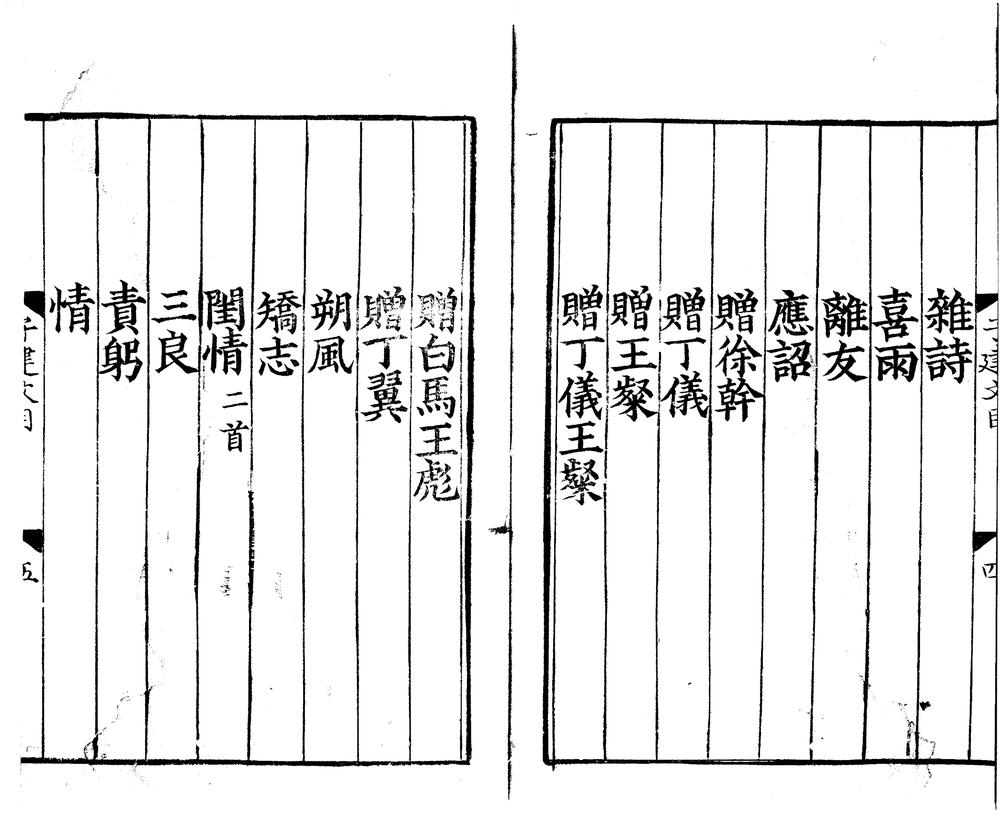 雜詩
喜雨
離友
應詔
贈徐幹
贈丁儀
贈王粲
贈丁儀王粲
贈白馬王彪
贈丁翼
朔風
矯志
閨情 二首
三良
責躬
情
子建文目
四
子建文目
五